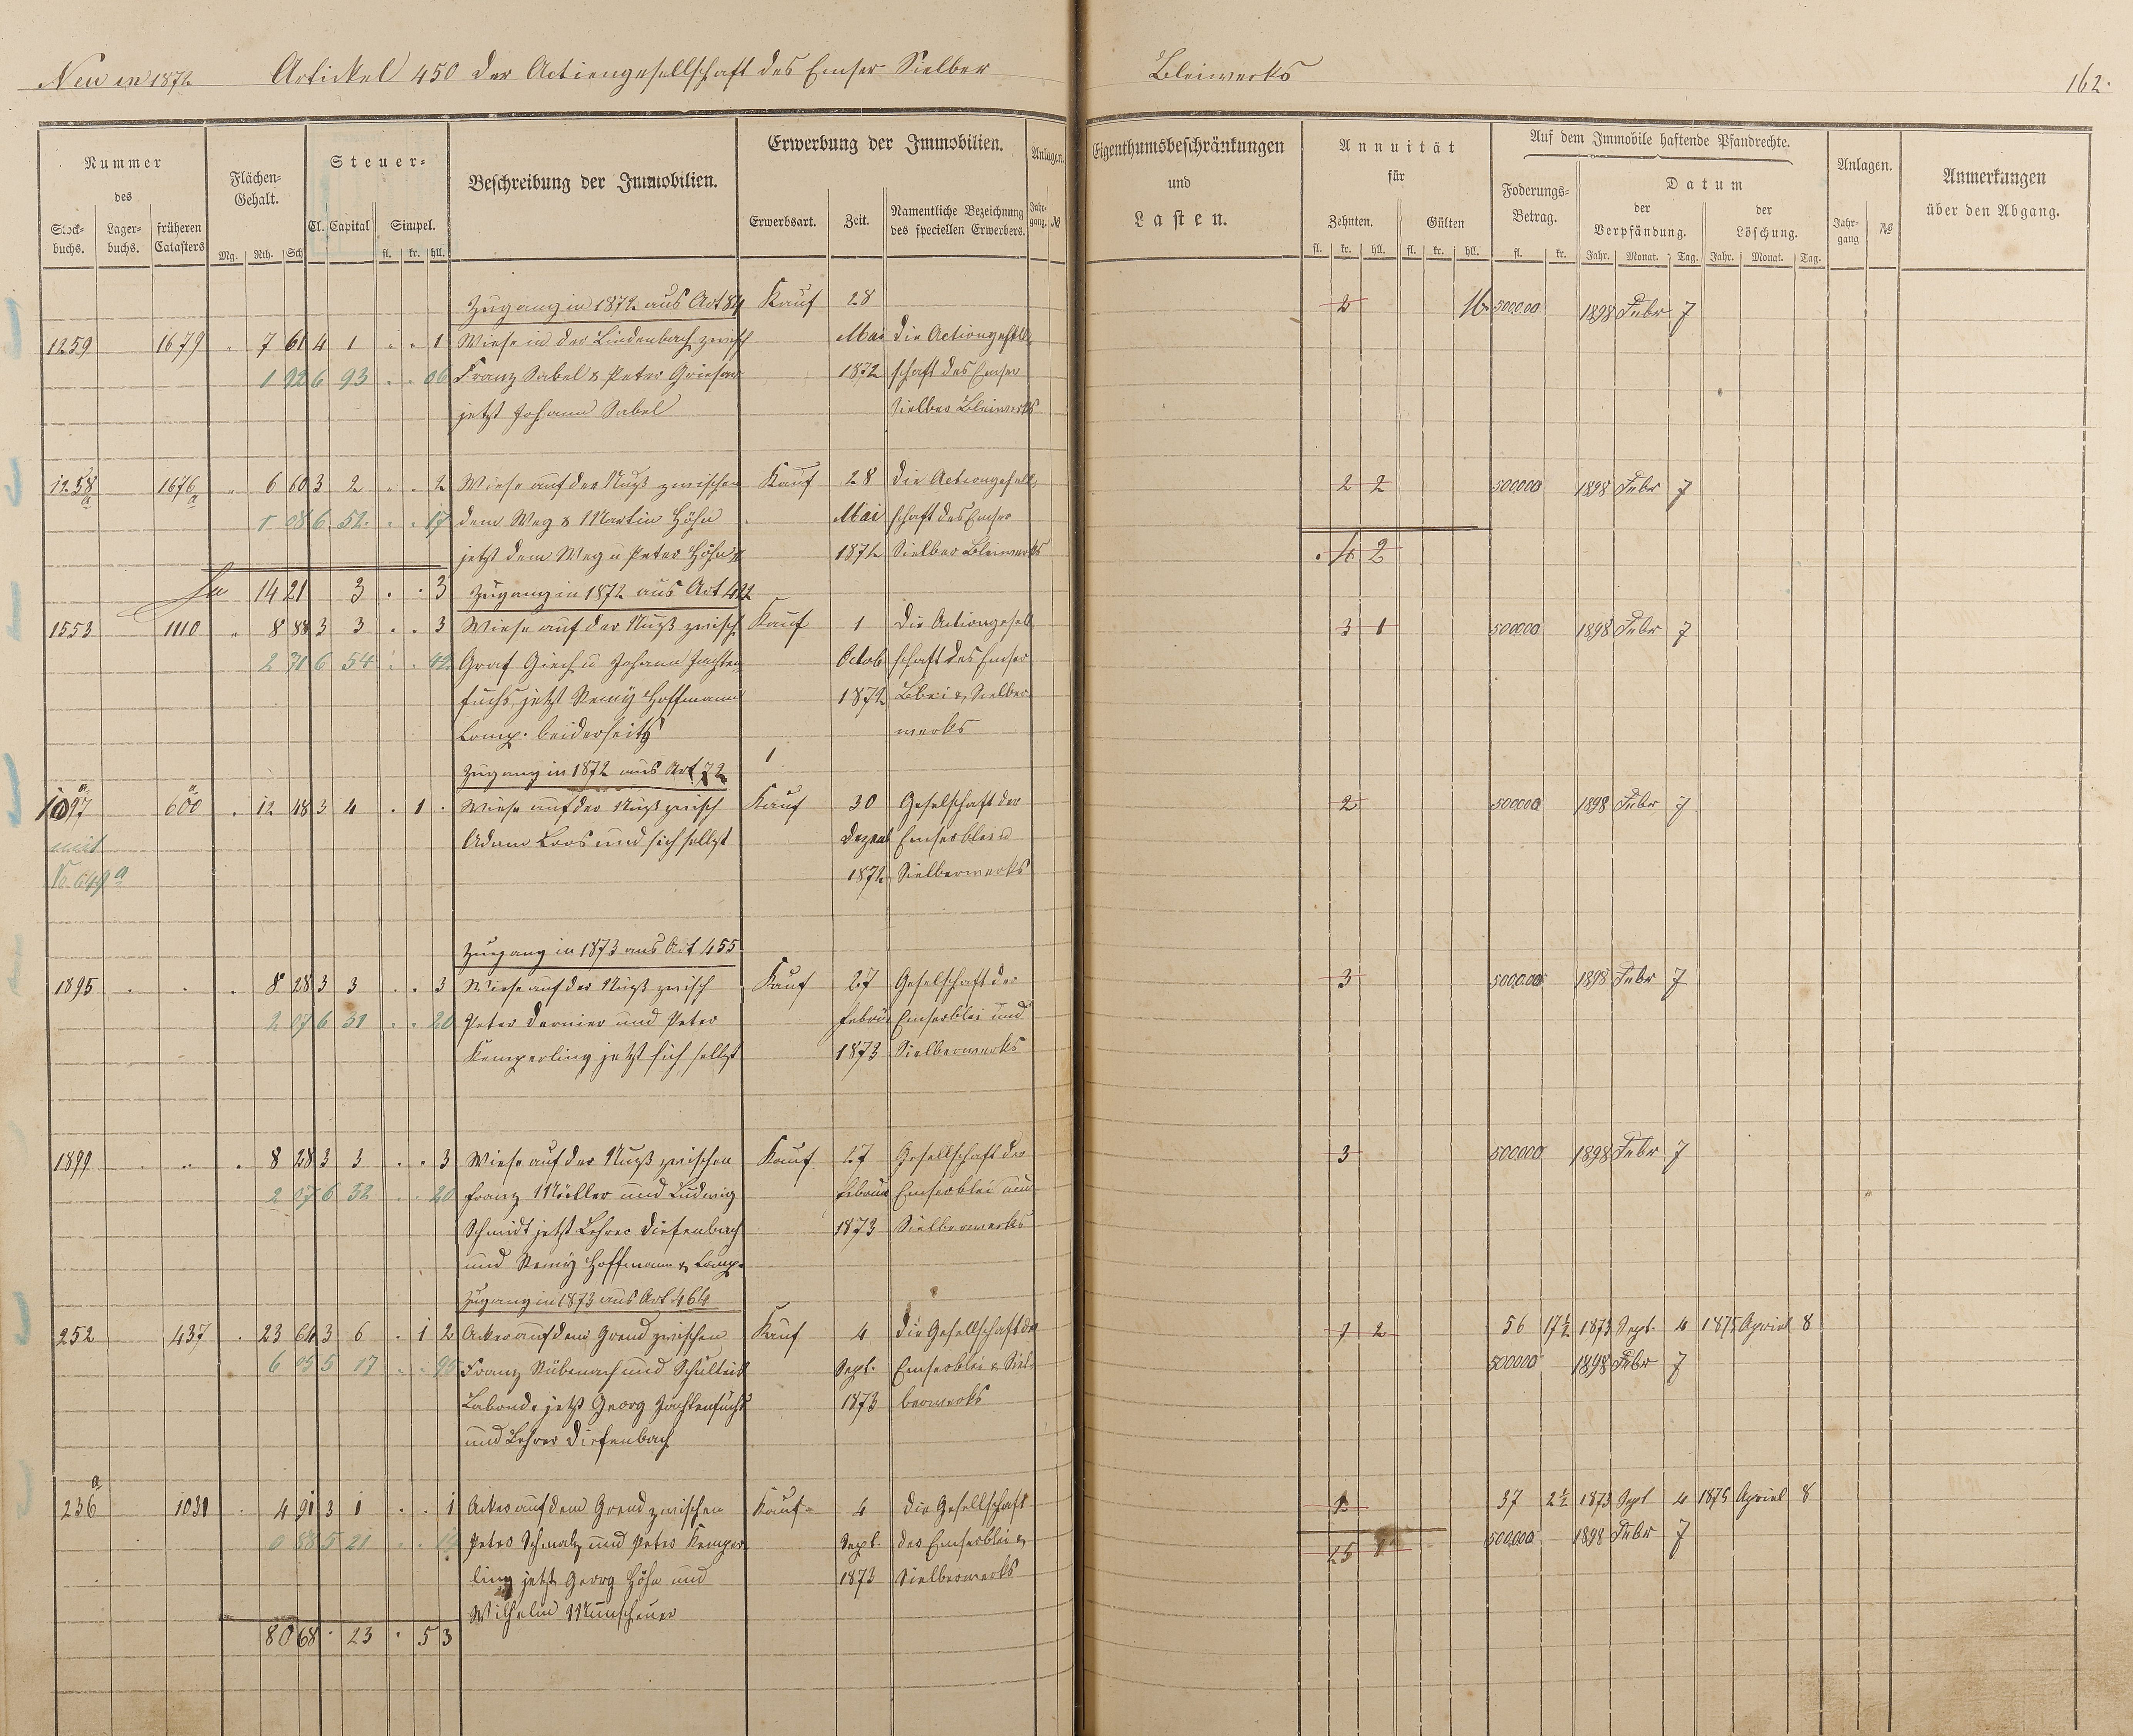 Neu in 1872 Artickel 450 der Actiengesellschaft des Emser Sielber Bleiwerks 162.
Nummer des
Stock-buchs. Lager-buchs. früheren Catasters
Flächen-Gehalt.
Mg. Rth. Sch
Steuer-
Cl. Capital Simpel.
fl. kr. hll.
Beschreibung der Immobilien.
Erwerbung der Immobilien.
Erwerbsart. Zeit. Namentliche Bezeichnung des speciellen Erwerbers.
Anlagen.
Jahr-gang. №
Eigenthumsbeschränkungen
und
Lasten.
Annuität
für
Zehnten. Gülten
fl. kr. hll. fl. kr. hll.
Auf dem Immobile haftende Pfandrechte.
Foderungs-Betrag.
fl. kr.
Datum
der Verpfändung. der Löschung.
Jahr. Monat. Tag. Jahr. Monat. Tag.
Anlagen.
Jahr-gang №
Anmerkungen
über den Abgang.
Zugang in 1872 aus Art 84 Kauf 28 2 16 500000 1898 Febr 7
1259 1679 . 7 61 4 1 . . 1 Wiese in der Lindenbach zwisch Mai die Actiengesell-
1 92 6 93 . . 06 Franz Sabel & Peter Grieser 1872 schaft des Emser
jetzt Johann Sabel Sielber Bleiwerks
1258 a 1676 a . 6 60 3 2 . . 2 Wiese auf der Nuß zwischen Kauf 28 die Actiengesell- 2 2 500000 1898 Febr 7
1 08 6 52 . . 17 dem Weg & Martin Höhn Mai schaft des Emser
jetzt dem Weg u Peter Höhn 1872 Sielber Bleiwerks . 4 2
14 21 3 . . 3 Zugang in 1872 aus Art 422
1553 1110 . 8 88 3 3 . . 3 Wiese auf der Nuß zwisch Kauf 1 die Actiengesell 3 1 500000 1898 Febr 7
2 71 6 54 . . 42 Graf Giech u Johann Jachten Octob schaft des Emser
fuchs jetzt Remy Hoffmann 1872 Blei & Sielber
Comp. beiderseits werks
Zugang in 1872 aus Art 72 1
1097 a 600 a . 12 48 3 4 . 1 . Wiese auf der Nuß zwisch Kauf 30 Geselschaft der 2 500000 1898 Febr 7
mit Adam Loos und sich selbst Dezemb Emserblei u
No 649 a 1872 Sielberwerks
Zugang in 1873 aus Art 455
1895 . . . 8 28 3 3 . . 3 Wiese auf der Nuß zwisch Kauf 27 Geselschaft der 3 500000 1898 Febr 7
2 07 6 31 . . 20 Peter Dernier und Peter Februar Emserblei und
Kemperling jetzt sich selbst 1873 Sielberwerks
1899 . . . 8 28 3 3 . . 3 Wiese auf der Nuß zwischen Kauf 27 Gesellschaft der 3 500000 1898 Febr 7
2 07 6 32 . . 20 Franz Müller und Ludwig Februar Emserblei und
Schmidt jetzt Lehrer Diefenbach 1873 Sielberwerks
und Remy Hoffmann & Comp.
Zugang in 1873 aus Art 464
252 437 . 23 64 3 6 . 1 2 Acker auf dem Grend zwischen Kauf 4 die Gesellschaft der 7 2 56 17½ 1873 Sept. 4 1875 Apriel 8
6 05 17 . . 95 Franz Nübenach und Schulteis Sept. Emserblei & Siel- 500000 1898 Febr 7
Labonde jetzt Georg Jachtenfuchs 1873 berwerks
und Lehrer Diefenbach
236 a 1031 . 4 91 3 1 . . 1 Acker auf dem Grend zwischen Kauf 4 die Gesellschaft 37 2½ 1873 Sept 4 1875 Apriel 8
0 88 5 21 . . 14 Peter Schmalz und Peter Kemper Sept. des Emserblei & 25 500000 1898 Febr 7
ling jetzt Georg Höhn und 1873 Sielberwerks
Wilhelm Munscheuer
80 68 . 23 . 5 3